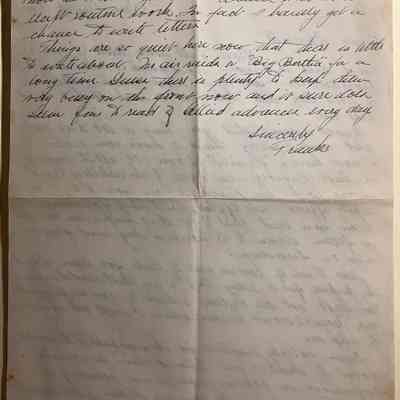 clear routine work. In fact I hardly get a
chance to write letters.
Things are so quiet here now that there is little
to write about. No air raids or "Big Bertha" for a
long time. Guess there is plenty to keep them
very busy on the front now and it sure does
seem fine to read of allied advances every day
Sincerely
Frank